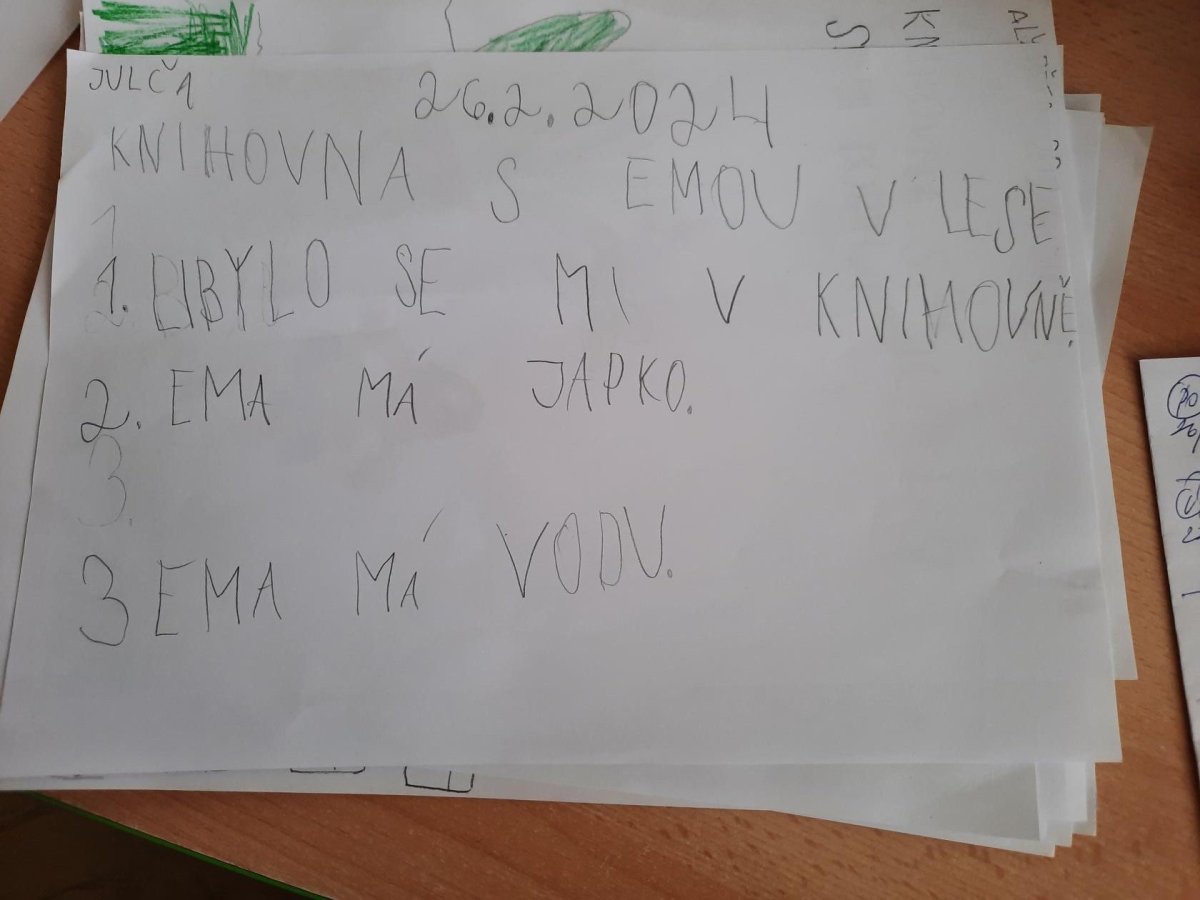 JULČA
26.2.2024
KNIHOVNA S EMOU V LESE
1. LIBYLO SE MI V KNIHOVNĚ.
2. EMA MÁ JAPKO.
3.
3 EMA MÁ VODU.
KN
S